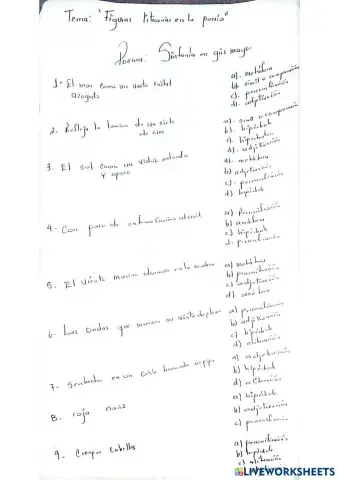 Tema: "Figuras literarias en la poesía"
Poema: Sinfonía en gris mayor
1- El mar como un vasto cristal
azogado
a). metáfora
b) símil o comparación
c). personificación
d). adjetivación
2. Refleja la lámina de un cielo
de zinc
a). símil o comparación
b). hipérbole
d). adjetivación
3. El sol como un vidrio redondo
y opaco
a). metáfora
b) adjetivación
c). personificación
d) hipérbole
4- Con paso de enfermo camina al cenit
a) Personificación
b) metáfora
c). hipérbole
5. El viento marino descansa en la sombra
a) metáfora
b) personificación
c) adjetivación
6- Las ondas que mueven su vientre de plomo
a) personificación
b) adjetivación
c) hipérbole
d) aliteración
7- Sentado en un cable fumando su pipa
a) adjetivación
b) hipérbole
d) aliteración
8. roja nariz
a) hipérbole
b) adjetivación
c) personificación
9. Crespo cabello
a) personificación
b) hipérbole
c) aliteración
LIVEWORKSHEETS